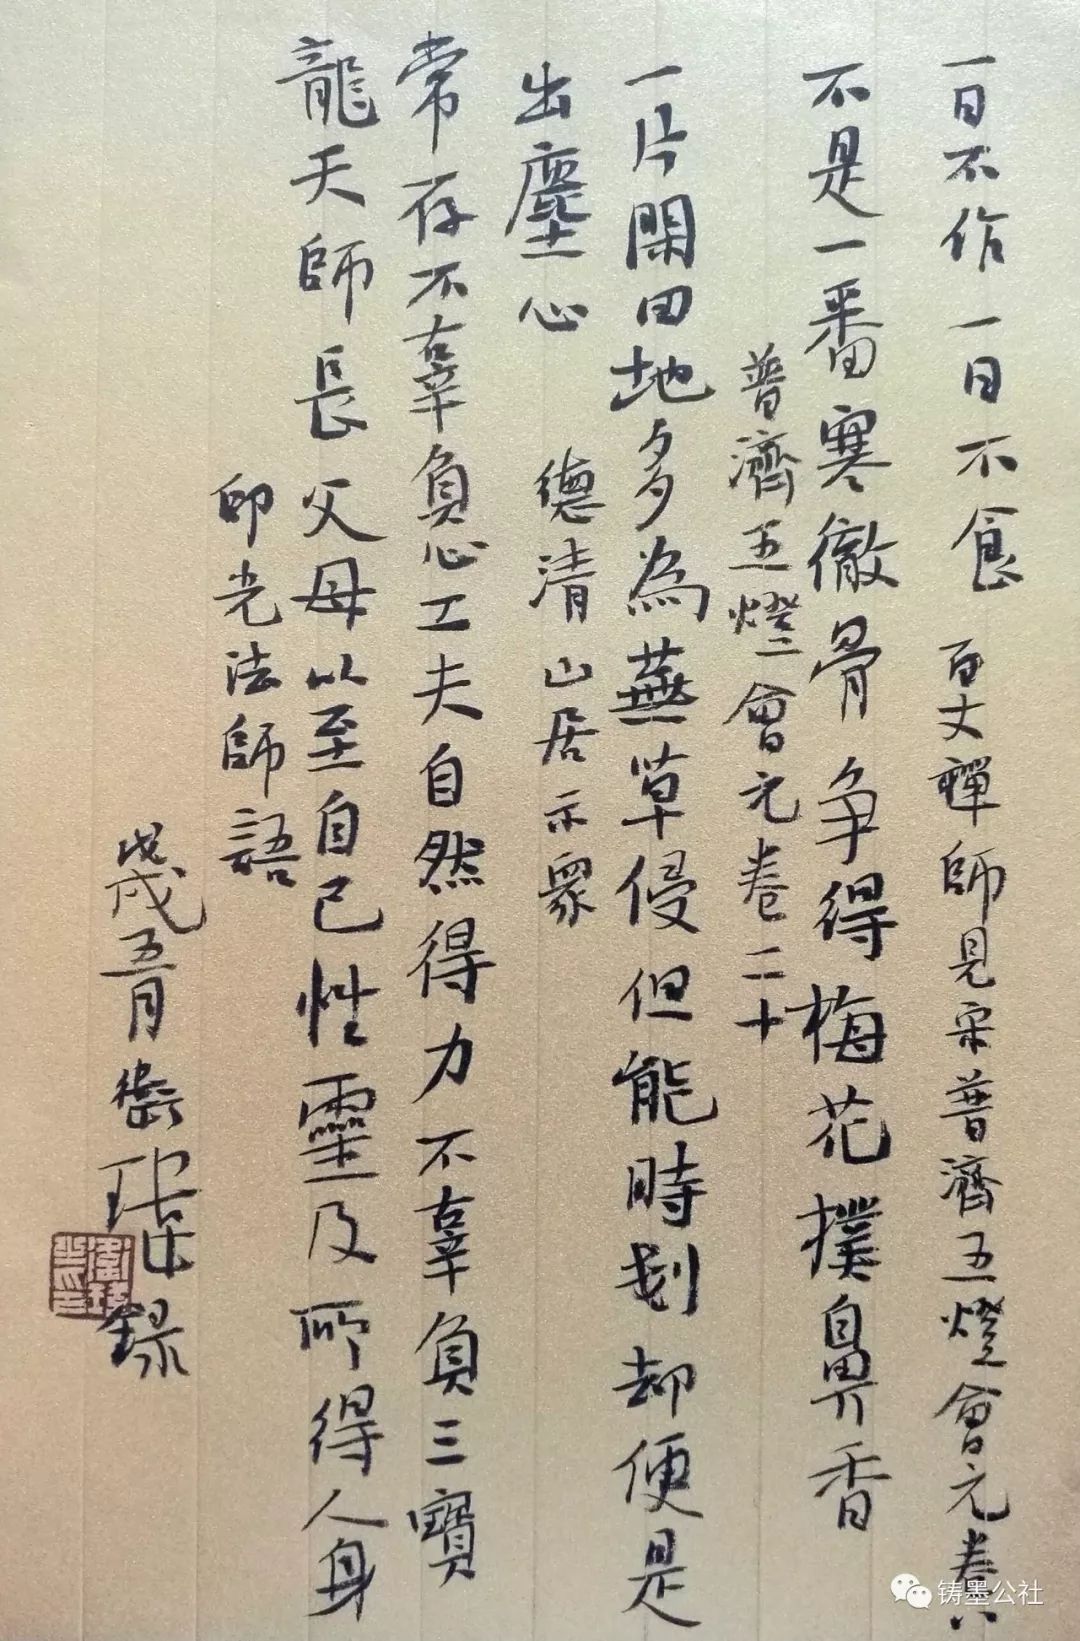 一日不作一日不食 百丈禪師見宋普濟五燈會元卷八
不是一番寒徹骨争得梅花撲鼻香
普濟五燈會元卷二十
一片閑田地多為蕪草侵但能時剗却便是
出塵心
德清山居示衆
常存不辜負心工夫自然得力不辜負三寶
龍天師長父母以至自己性靈及所得人身
印光法師語
戊戌五月衛錄
铸墨公社